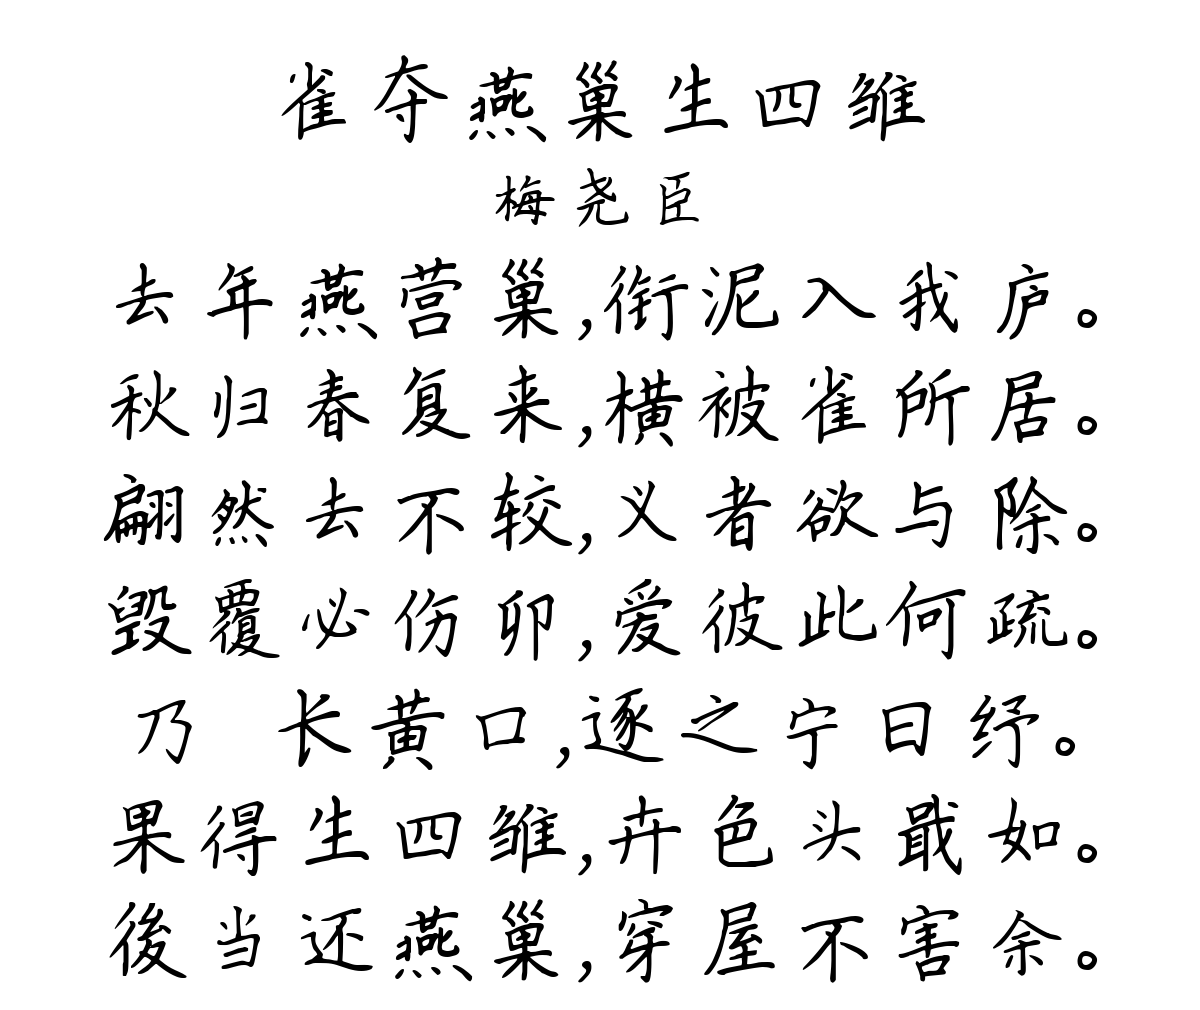 雀夺燕巢生四雏
梅尧臣
去年燕营巢,衔泥入我庐。
秋归春复来,横被雀所居。
翩然去不较,义者欲与除。
毁覆必伤卵,爱彼此何疏。
乃 长黄口,逐之宁曰纾。
果得生四雏,卉色头戢如。
後当还燕巢,穿屋不害余。